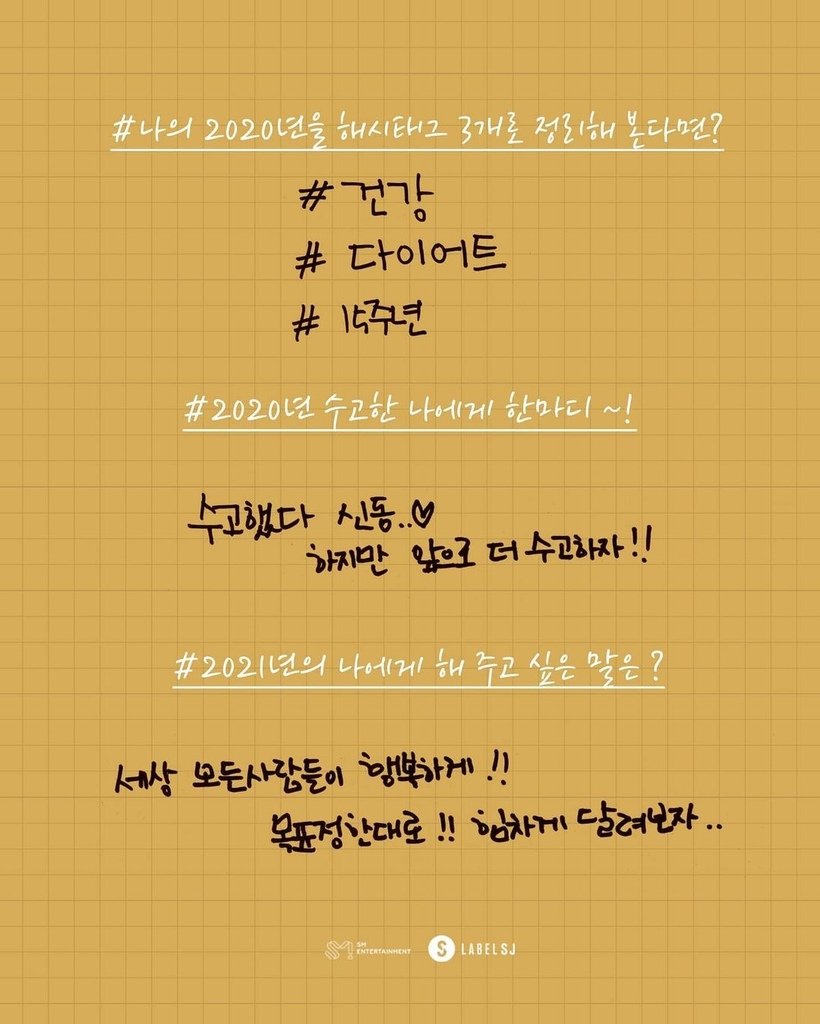 #나의 2020년을 해시태그 3개로 정리해 본다면?
# 건강
# 다이어트
# 15주년
#2020년 수고한 나에게 한마디 ~!
수고했다 신동..♡
하지만 앞으로 더 수고하자!!
#2021년의 나에게 해 주고 싶은 말은?
세상 모든사람들이 행복하게!!
목표정한대로!! 힘차게 달려보자..
SM ENTERTAINMENT
S LABELSJ